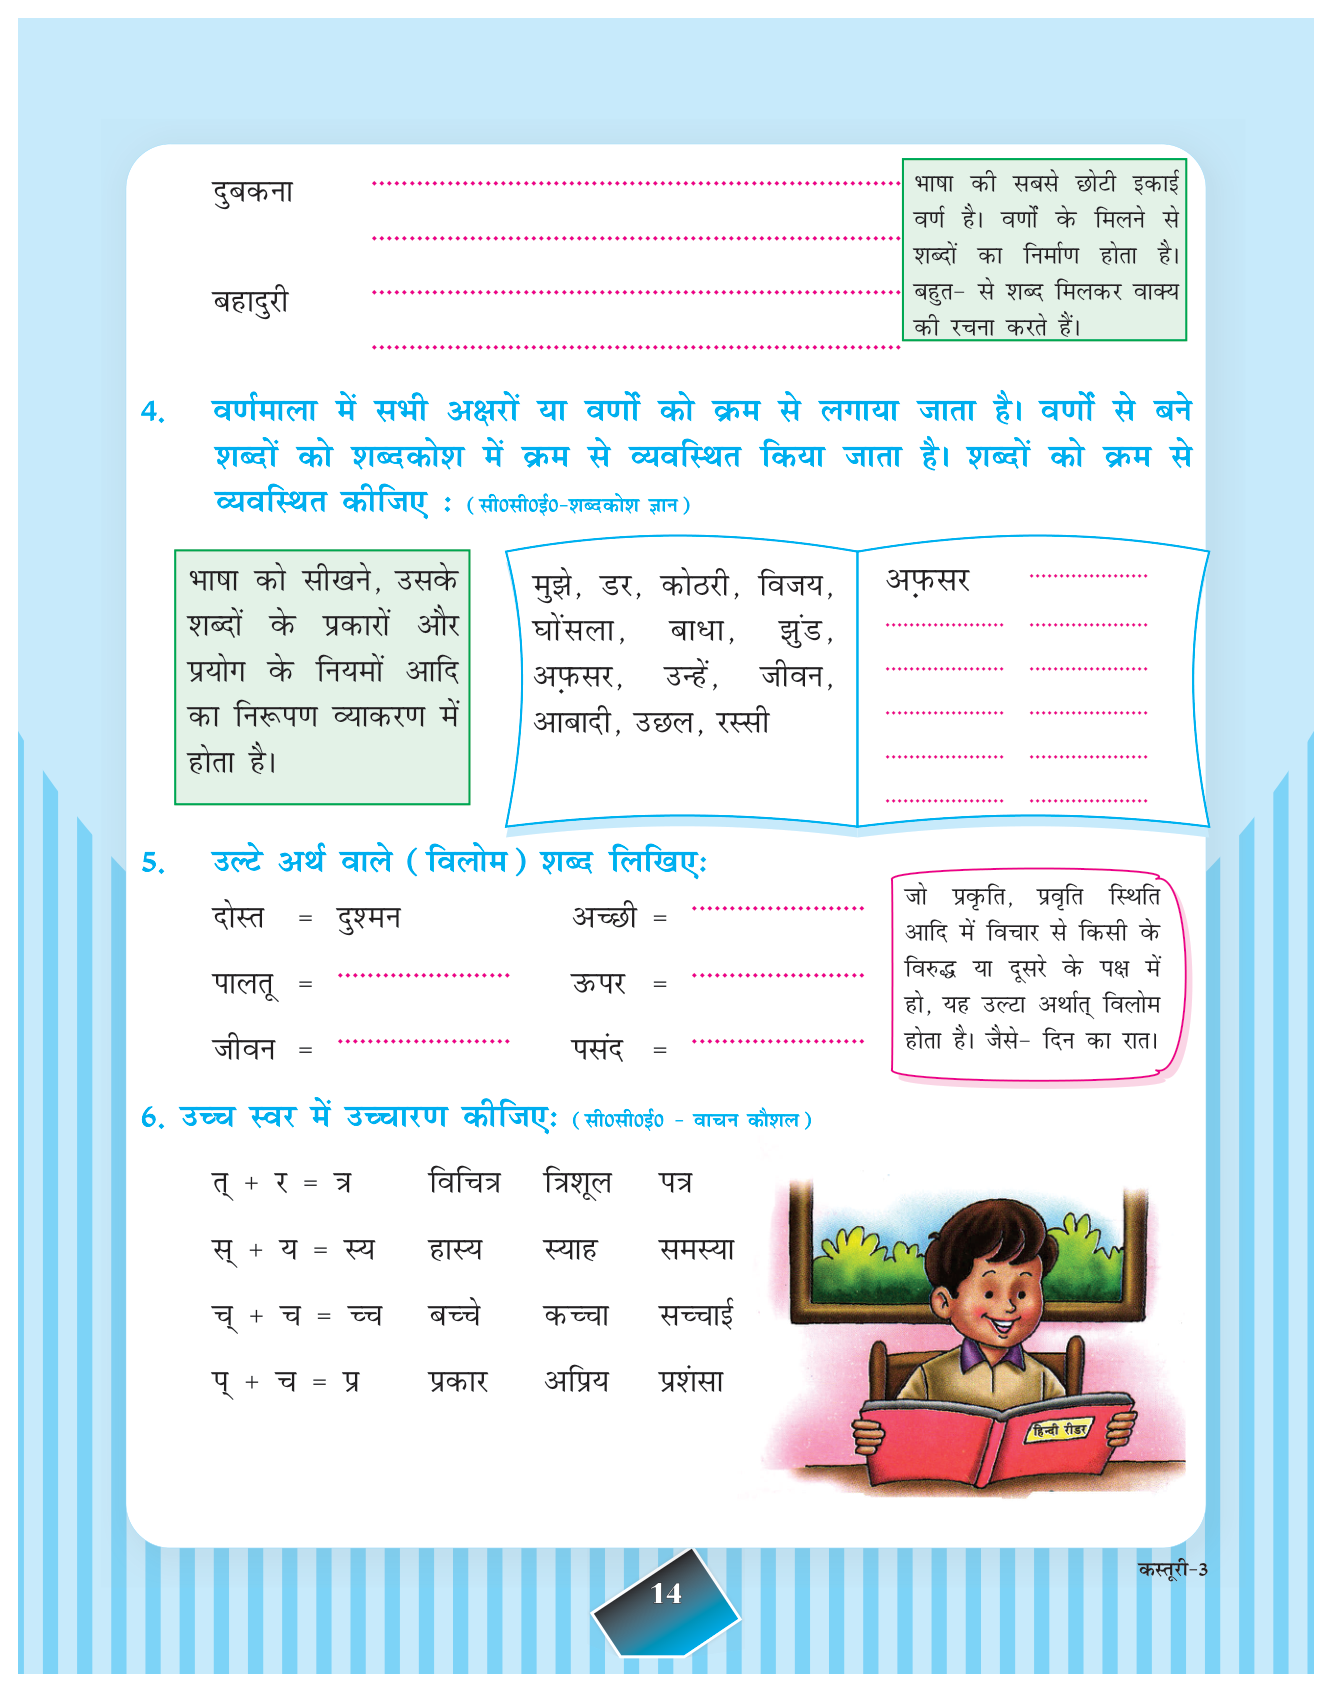 दुबकना
बहादुरी
भाषा की सबसे छोटी इकाई
वर्ण है। वर्णों के मिलने से
शब्दों का निर्माण होता है।
बहुत- से शब्द मिलकर वाक्य
की रचना करते हैं।
4. वर्णमाला में सभी अक्षरों या वर्णों को क्रम से लगाया जाता है। वर्णों से बने
शब्दों को शब्दकोश में क्रम से व्यवस्थित किया जाता है। शब्दों को क्रम से
व्यवस्थित कीजिए : (सी0सी0ई0-शब्दकोश ज्ञान)
भाषा को सीखने, उसके
शब्दों के प्रकारों और
प्रयोग के नियमों आदि
का निरूपण व्याकरण में
होता है।
मुझे, डर, कोठरी, विजय,
घोंसला, बाधा, झुंड,
अफ़सर, उन्हें, जीवन,
आबादी, उछल, रस्सी
अफ़सर
5. उल्टे अर्थ वाले (विलोम) शब्द लिखिए:
दोस्त = दुश्मन अच्छी =
पालतू = ऊपर =
जीवन = पसंद =
जो प्रकृति, प्रवृति स्थिति
आदि में विचार से किसी के
विरुद्ध या दूसरे के पक्ष में
हो, यह उल्टा अर्थात् विलोम
होता है। जैसे- दिन का रात।
6. उच्च स्वर में उच्चारण कीजिए: (सी0सी0ई0 - वाचन कौशल)
त् + र = त्र विचित्र त्रिशूल पत्र
स् + य = स्य हास्य स्याह समस्या
च् + च = च्च बच्चे कच्चा सच्चाई
प् + च = प्र प्रकार अप्रिय प्रशंसा
हिन्दी रीडर
14
कस्तूरी-3